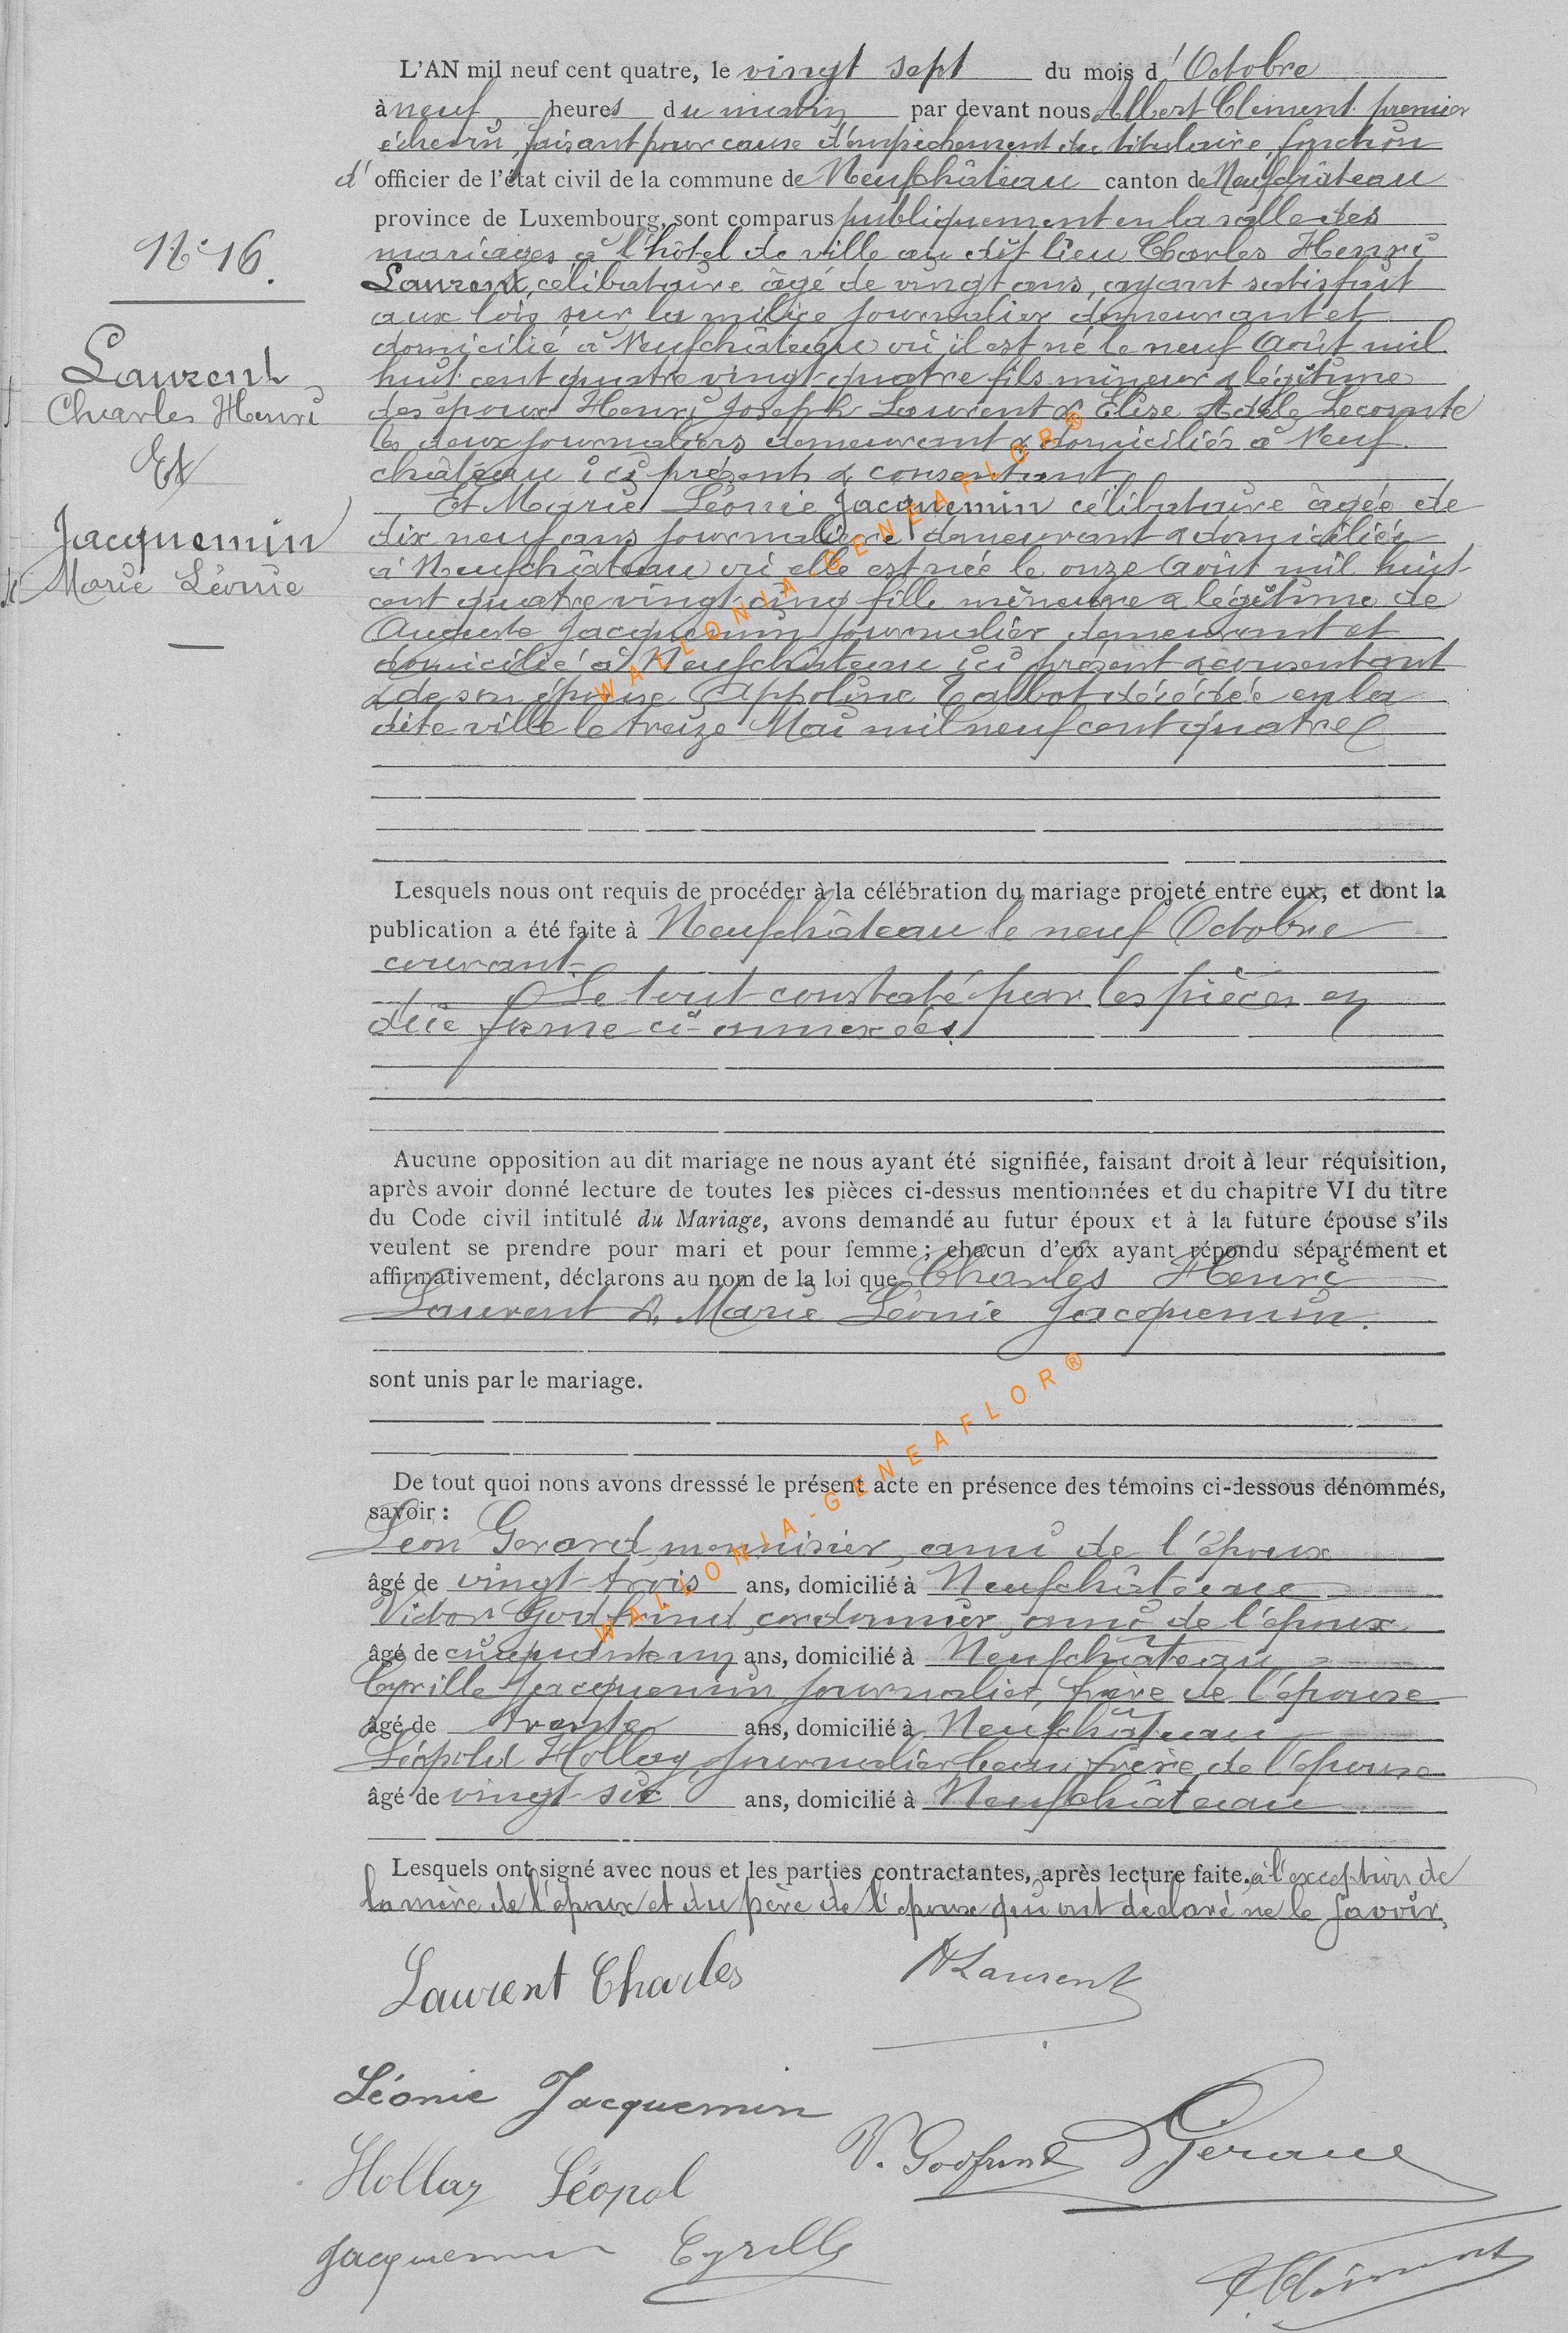 L'AN mil neuf cent quatre, le vingt sept du mois d'Octobre
à neuf heures du matin par devant nous Albert Clément premier
échevin, faisant pour cause d'empêchement du titulaire, fonction
d'officier de l'état civil de la commune de Neufchâteau canton de Neufchâteau
province de Luxembourg, sont comparus publiquement en la salle des
mariages à l'hôtel de ville au dit lieu Charles Henri
Laurent, célibataire âgé de vingt ans, ayant satisfait
aux lois sur la milice journalier demeurant et
domicilié à Neufchâteau où il est né le neuf Août mil
huit cent quatre vingt quatre fils mineur & légitime
des époux Henri Joseph Laurent & Elise Adèle Lecomte
les deux journaliers demeurant & domiciliés à Neuf
château ici présents & consentant
Et Marie Léonie Jacquemin célibataire âgée de
dix neuf ans journalière demeurant & domiciliée
à Neufchâteau où elle est née le onze Août mil huit
cent quatre vingt cinq fille mineure & légitime de
Auguste Jacquemin journalier demeurant et
domicilié à Neufchâteau ici présent & consentant
& de son épouse Appoline Talbot décédée en la
dite ville le treize Mai mil neuf cent quatre
N° 16.
Laurent
Charles Henri
Et
Jacquemin
Marie Léonie
Lesquels nous ont requis de procéder à la célébration du mariage projeté entre eux, et dont la
publication a été faite à Neufchâteau le neuf Octobre
courant
Le tout constaté par les pièces en
due forme ci-annexées.
Aucune opposition au dit mariage ne nous ayant été signifiée, faisant droit à leur réquisition,
après avoir donné lecture de toutes les pièces ci-dessus mentionnées et du chapitre VI du titre
du Code civil intitulé du Mariage, avons demandé au futur époux et à la future épouse s'ils
veulent se prendre pour mari et pour femme ; chacun d'eux ayant répondu séparément et
affirmativement, déclarons au nom de la loi que Charles Henri
Laurent & Marie Léonie Jacquemin.
sont unis par le mariage.
De tout quoi nons avons dresssé le présent acte en présence des témoins ci-dessous dénommés,
savoir :
Léon Gerard menuisier, ami de l'époux
âgé de vingt trois ans, domicilié à Neufchâteau
Victor Godfrind, cordonnier, ami de l'époux
âgé de cinquante un ans, domicilié à Neufchâteau
Cyrille Jacquemin journalier, frère de l'épouse
âgé de trente ans, domicilié à Neufchâteau
Léopold Hollay, journalier beau frère de l'épouse
âgé de vingt six ans, domicilié à Neufchâteau
Lesquels ont signé avec nous et les parties contractantes, après lecture faite, à l'exception de
la mère de l'époux et du père de l'épouse qui ont déclaré ne le savoir.
Laurent Charles
H Laurent
Léonie Jacquemin
V. Godfrind
Hollay Léopol
Jacquemin Cyrille
A Clément
WALLONIA-GENEAFLOR®
WALLONIA-GENEAFLOR®